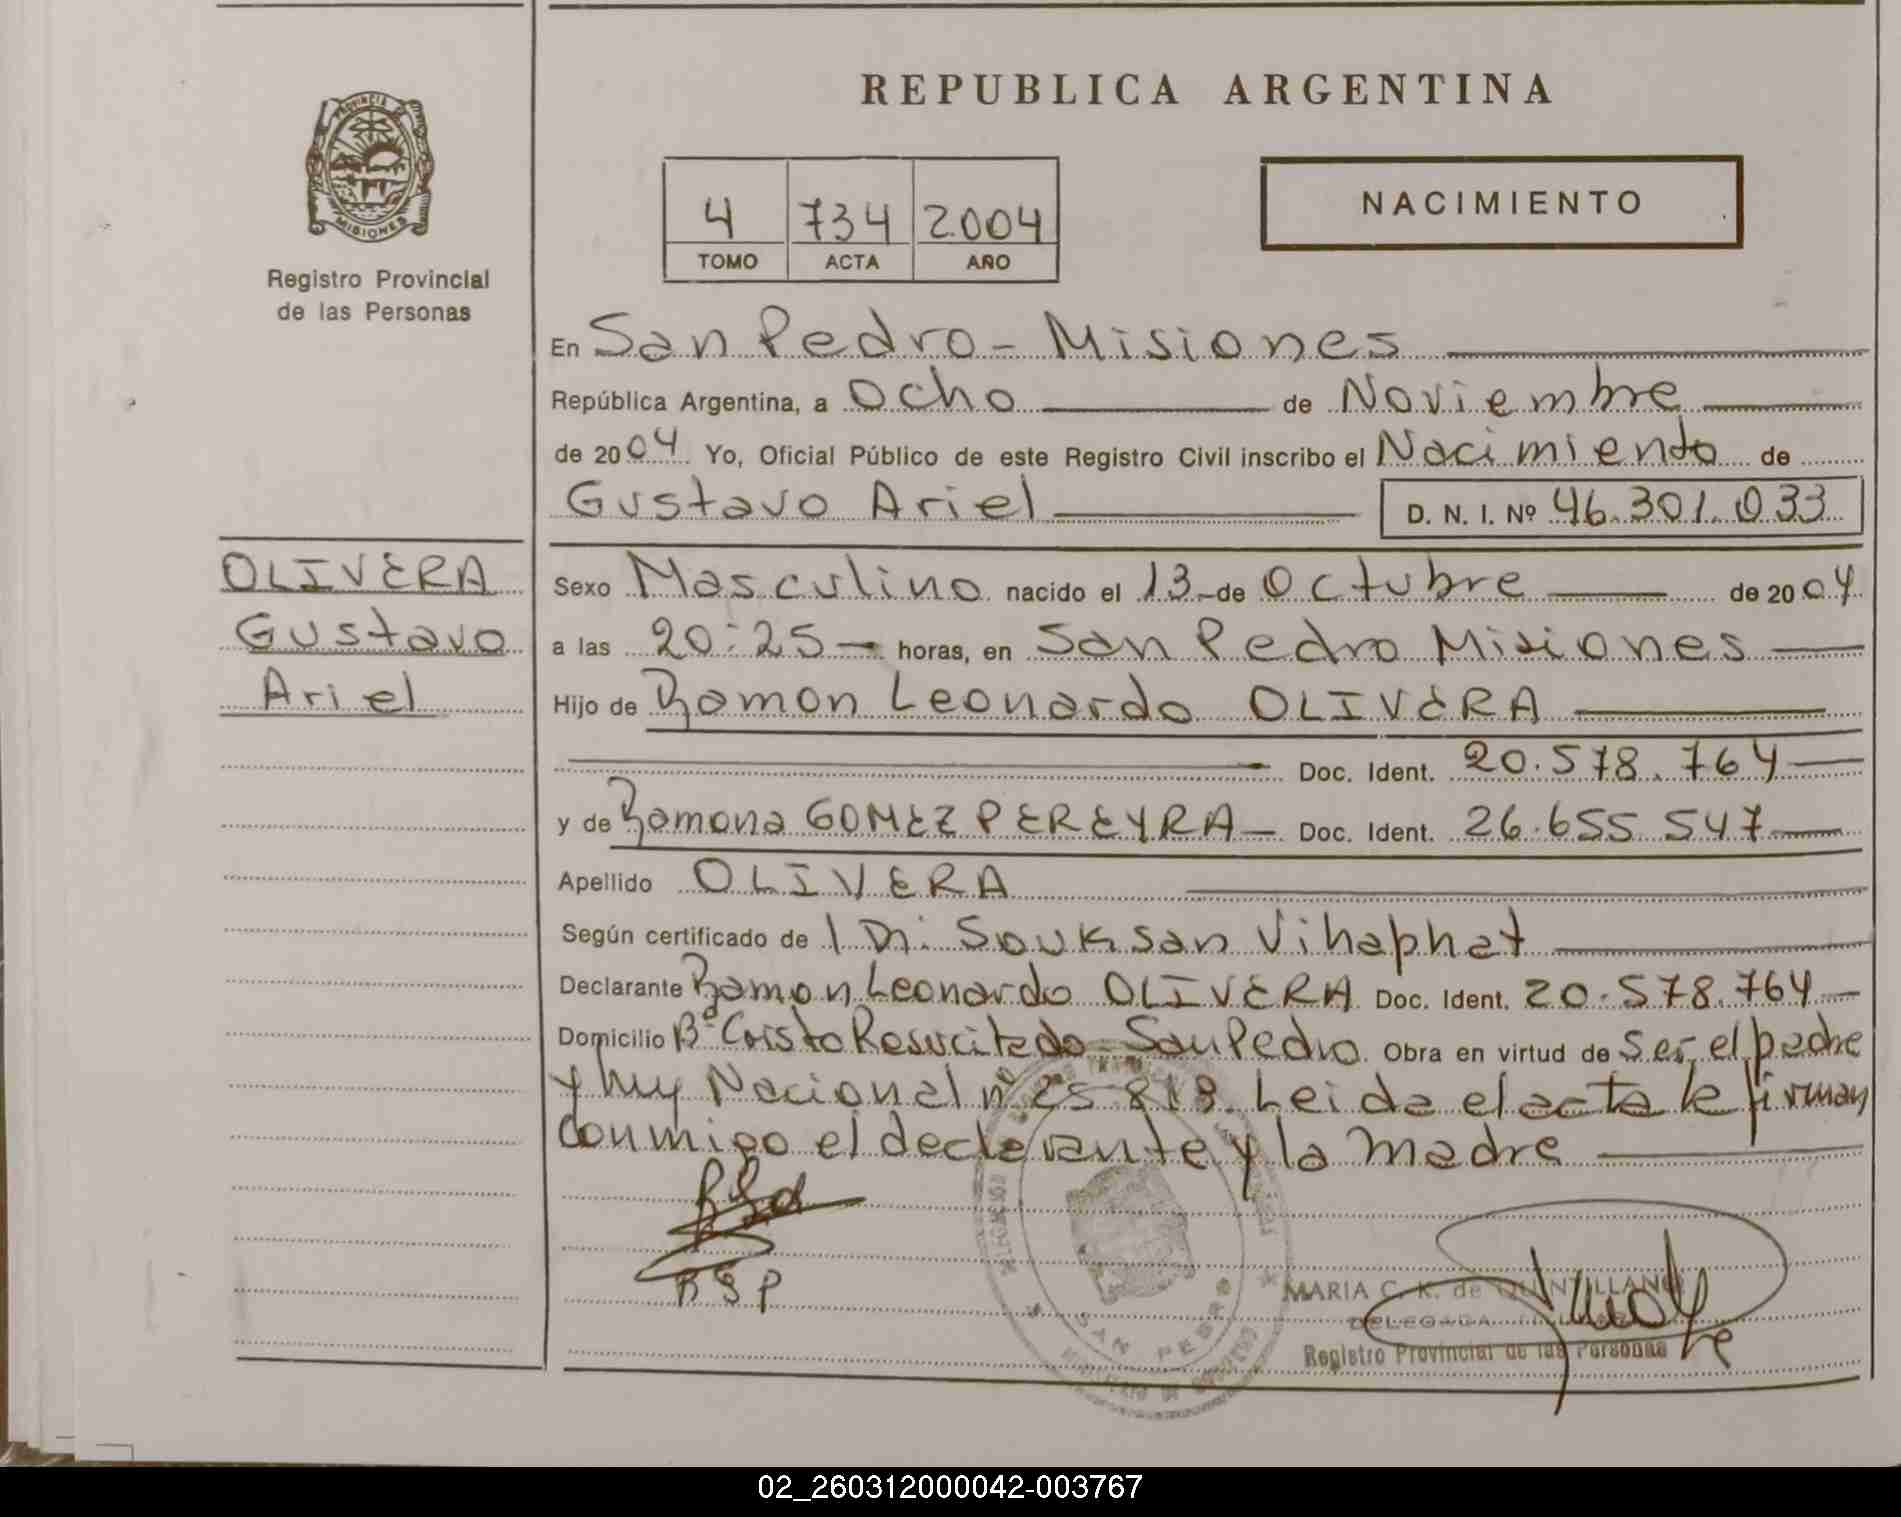 REPUBLICA ARGENTINA
PROVINCIA
MISIONES
Registro Provincial
de las Personas
4 734 2004
TOMO ACTA AÑO
NACIMIENTO
En San Pedro - Misiones
República Argentina, a Ocho de Noviembre
de 2004 Yo, Oficial Público de este Registro Civil inscribo el Nacimiento de
Gustavo Ariel D. N. I. Nº 46.301.033
OLIVERA
Gustavo
Ariel
Sexo Masculino nacido el 13 de Octubre de 2004
a las 20:25 horas, en San Pedro Misiones
Hijo de Ramon Leonardo OLIVERA
Doc. Ident. 20.578.764
y de Ramona GOMEZ PEREYRA Doc. Ident. 26.655.547
Apellido OLIVERA
Según certificado de Souksan Vihaphat
Declarante Ramon Leonardo OLIVERA Doc. Ident. 20.578.764
Domicilio Bº Cristo Resucitado - San Pedro Obra en virtud de ser el padre
y Nacional nº 25.818. Leida el acta la firman
conmigo el declarante y la madre
RSP
SAN PEDRO
MARIA C. K. de QUINTILLANO
DELEGADA
Registro Provincial de las Personas
02_260312000042-003767